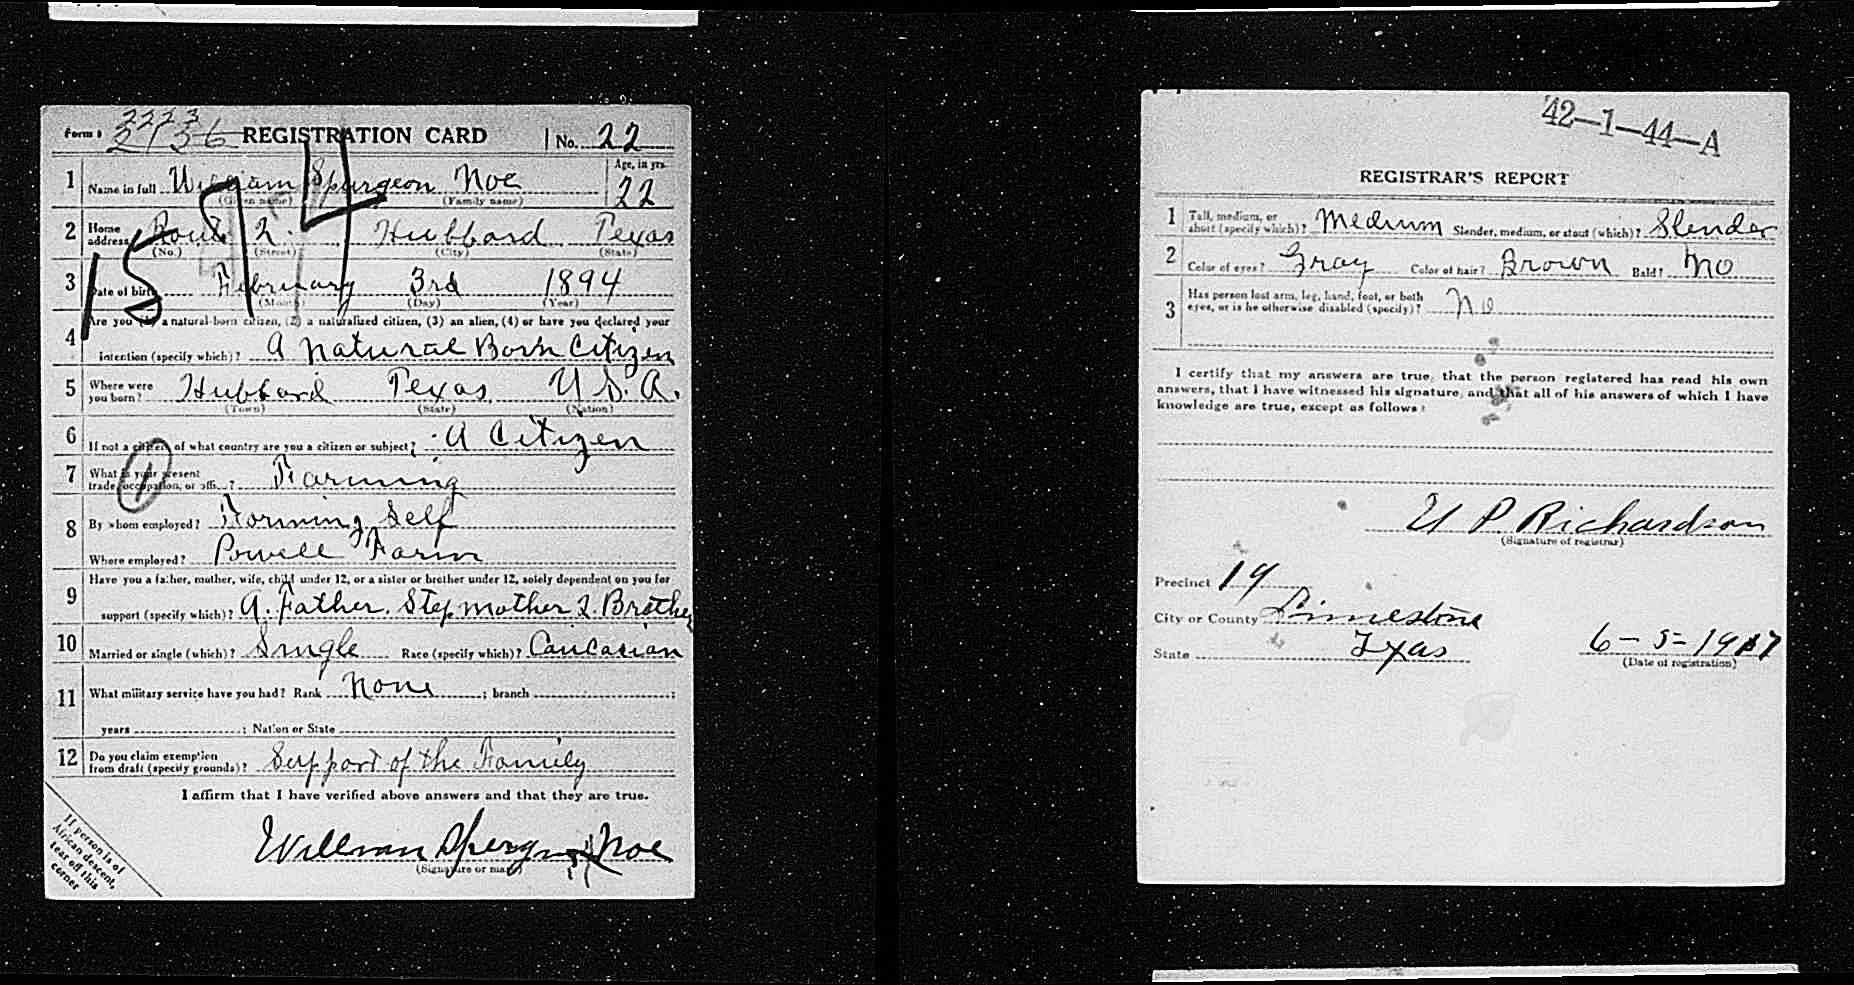 2223
Form 1 2136 REGISTRATION CARD No. 22
1 Name in full William Spurgeon Noe Age, in yrs. 22
(Given name) (Family name)
2 Home address Rout 2. Hubbard Texas
(No.) (Street) (City) (State)
1594
3 Date of birth February 3rd 1894
(Month) (Day) (Year)
4 Are you (1) a natural-born citizen, (2) a naturalized citizen, (3) an alien, (4) or have you declared your
intention (specify which)? A natural Born Citizen
5 Where were you born? Hubbard Texas U.S.A.
(Town) (State) (Nation)
6 If not a citizen, of what country are you a citizen or subject? A Citizen
7 What is your present trade, occupation, or office? Farming
1
8 By whom employed? Farming Self
Where employed? Powell Farm
9 Have you a father, mother, wife, child under 12, or a sister or brother under 12, solely dependent on you for
support (specify which)? A. Father. Stepmother 2. Brother
10 Married or single (which)? Single Race (specify which)? Caucasian
11 What military service have you had? Rank None ; branch ;
years ; Nation or State
12 Do you claim exemption from draft (specify grounds)? Support of the Family
I affirm that I have verified above answers and that they are true.
(Signature or mark) William Noe
If person is of
African descent,
tear off this
corner
42-1-44-A
REGISTRAR'S REPORT
1 Tall, medium, or short (specify which)? Medium Slender, medium, or stout (which)? Slender
2 Color of eyes? Gray Color of hair? Brown Bald? No
3 Has person lost arm, leg, hand, foot, or both eyes, or is he otherwise disabled (specify)? No
I certify that my answers are true, that the person registered has read his own
answers, that I have witnessed his signature, and that all of his answers of which I have
knowledge are true, except as follows:
U P Richardson
(Signature of registrar)
Precinct 19
City or County Limestone
State Texas 6-5-1917
(Date of registration)